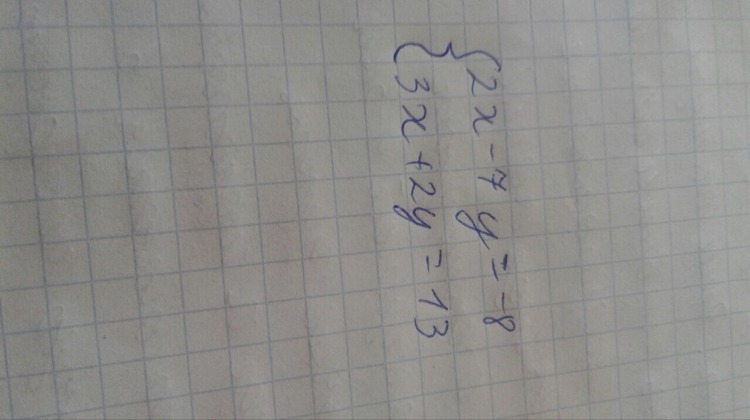 2x - 7y = -8
3x + 2y = 13